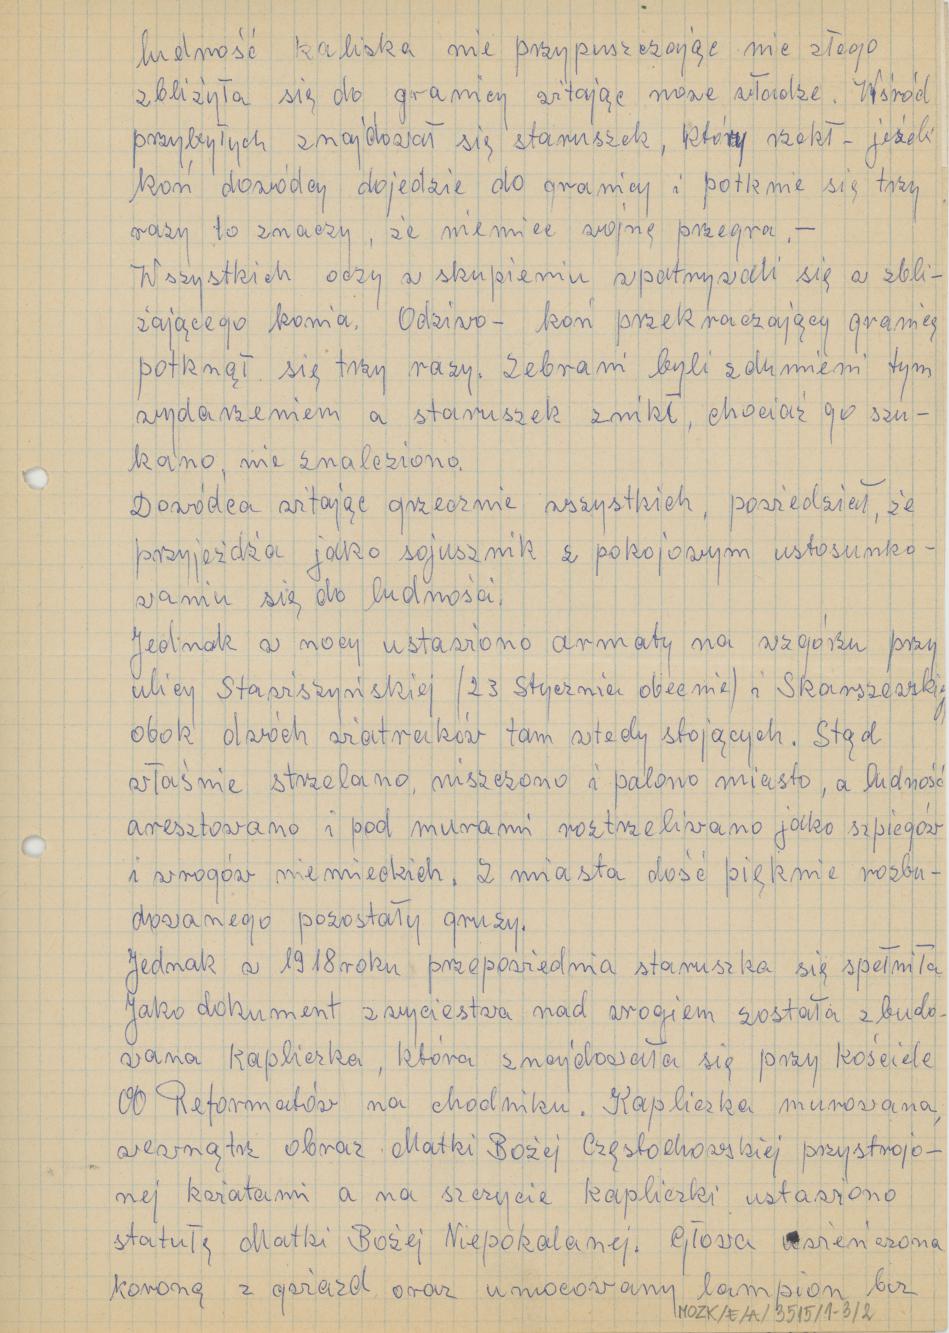 ludność kaliska nie przypuszczając nic złego
zbliżyła się do granicy witając nowe władze. Wśród
przybyłych znajdował się staruszek, który rzekł – jeżeli
koń dowódcy dojedzie do granicy i potknie się trzy
razy to znaczy, że niemiec wojnę przegra. –
Wszystkich oczy w skupieniu wpatrywali się w zbli-
żającego konia. Odziwo – koń przekraczający granicę
potknął się trzy razy. Zebrani byli zdumieni tym
wydarzeniem a staruszek znikł, chociaż go szu-
kano, nie znaleziono.
Dowódca witając grzecznie wszystkich, powiedział, że
przyjeżdża jako sojusznik z pokojowym ustosunko-
waniu się do ludności.
Jednak w nocy ustawiono armaty na wzgórzu przy
ulicy Stawiszyńskiej (23 Stycznia obecnie) i Skarszewskiej
obok dwóch wiatraków tam wtedy stojących. Stąd
właśnie strzelano, niszczono i palono miasto, a ludność
aresztowano i pod murami roztrzeliwano jako szpiegów
i wrogów niemieckich. Z miasta dość pięknie rozbu-
dowanego pozostały gruzy.
Jednak w 1918 roku przepowiednia staruszka się spełniła
Jako dokument zwyciestwa nad wrogiem została zbudo-
wana Kapliczka, która znajdowała się przy kościele
OO Reformatów na chodniku. Kapliczka murowana,
wewnątrz obraz Matki Bożej Częstochowskiej przystrojo-
nej kwiatami a na szczycie kapliczki ustawiono
statułę Matki Bożej Niepokalanej. Głowa uwieńczona
koroną z gwiazd oraz umocowany lampion bez
MOZK/E/A/3515/1-3/2